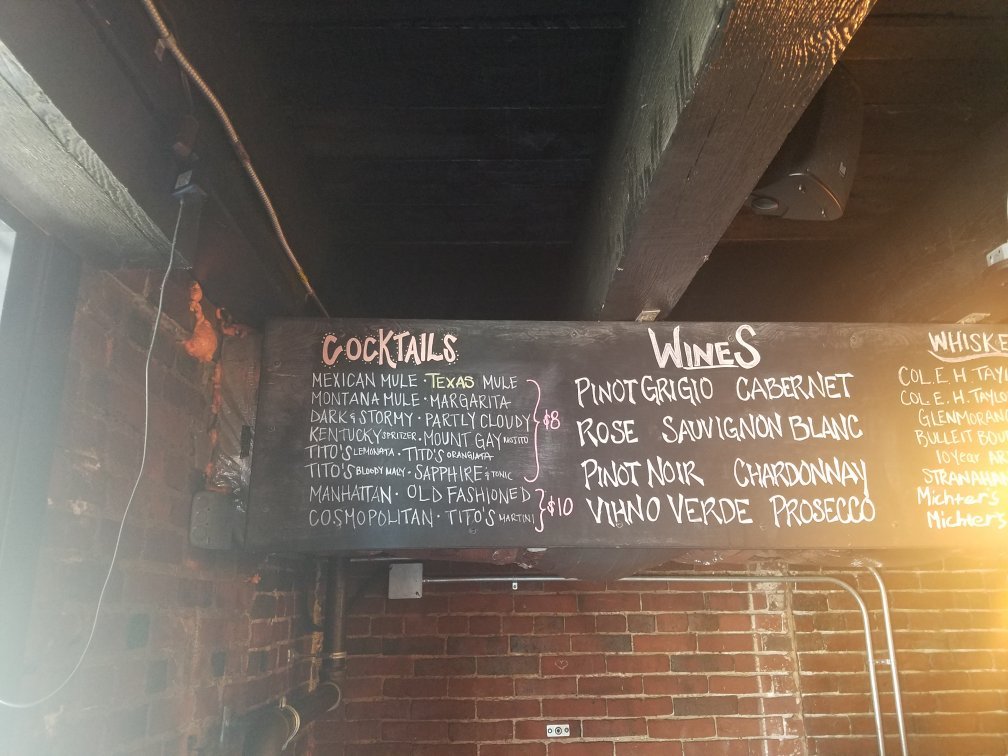 COCKTAILS
MEXICAN MULE · TEXAS MULE
MONTANA MULE · MARGARITA
DARK & STORMY · PARTLY CLOUDY
KENTUCKY SPRITZER · MOUNT GAY MOJITO
TITO'S LEMONATA · TITO'S ORANGIATA
TITO'S BLOODY MALY · SAPPHIRE & TONIC
$8
MANHATTAN · OLD FASHIONED
COSMOPOLITAN · TITO'S MARTINI
$10
WINES
PINOT GRIGIO CABERNET
ROSE SAUVIGNON BLANC
PINOT NOIR CHARDONNAY
VIHNO VERDE PROSECCO
WHISKE
COL. E. H. TAYL
COL. E. H. TAYLO
GLENMORAN
BULLEIT BOU
10 Year AR
STRANAHAN
Michter's
Michter's